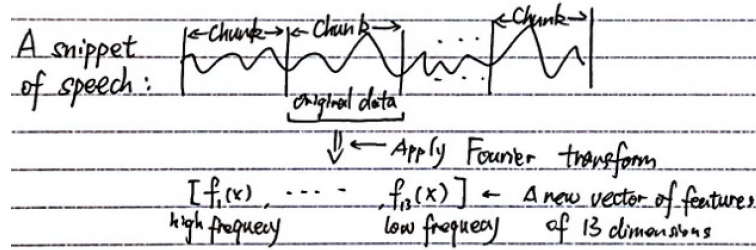 A snippet of speech:
Chunk Chunk Chunk
original data
Apply Fourier transform
[f₁(x) ‐ ‐ ‐ ‐ ‐ , f₁₃(x)] ← A new vector of features of 13 dimensions
high frequecy low frequecy